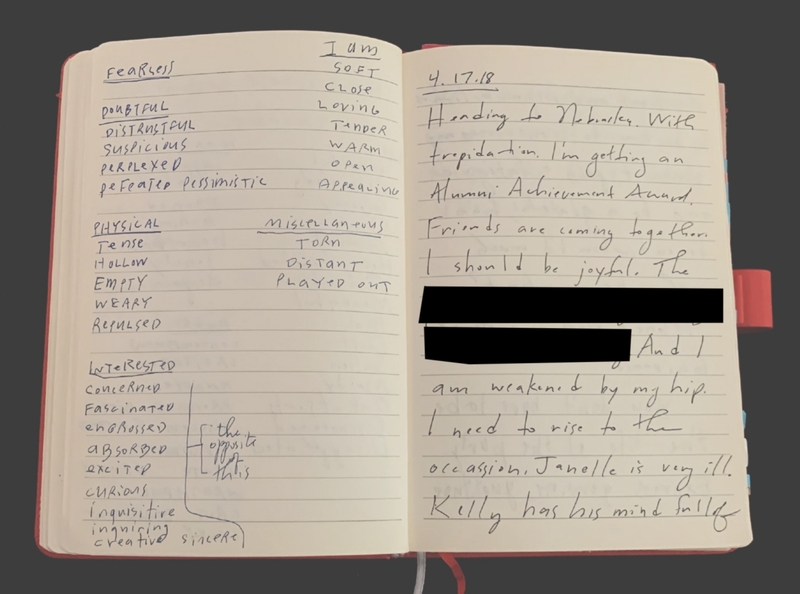 I am
FEARLESS
SOFT
CLOSE
DOUBTFUL
LOVING
DISTRUSTFUL
TENDER
SUSPICIOUS
WARM
PERPLEXED
OPEN
DEFEATED PESSIMISTIC
APPEALING
PHYSICAL
MISCELLANEOUS
TENSE
TORN
HOLLOW
DISTANT
EMPTY
PLAYED OUT
WEARY
REPULSED
INTERESTED
CONCERNED
FASCINATED
ENGROSSED
ABSORBED
EXCITED
CURIOUS
INQUISITIVE
INQUIRING
CREATIVE SINCERE
the
opposite
of
this
4.17.18
Heading to Nebraska. With
trepidation. I'm getting an
Alumni Achievement Award.
Friends are coming together.
I should be joyful. The
And I
am weakened by my hip.
I need to rise to the
occassion. Janelle is very ill.
Kelly has his mind full of